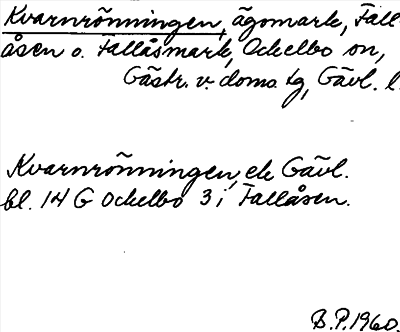 Kvarnrönningen, ägomark, Fall-
åsen o. Fallåsmark, Ockelbo sn,
Gästr. v. doms. tg, Gävl. l.
Kvarnrönningen, ek Gävl.
bl. 14 G Ockelbo 3 i Fallåsen.
B.P. 1960.